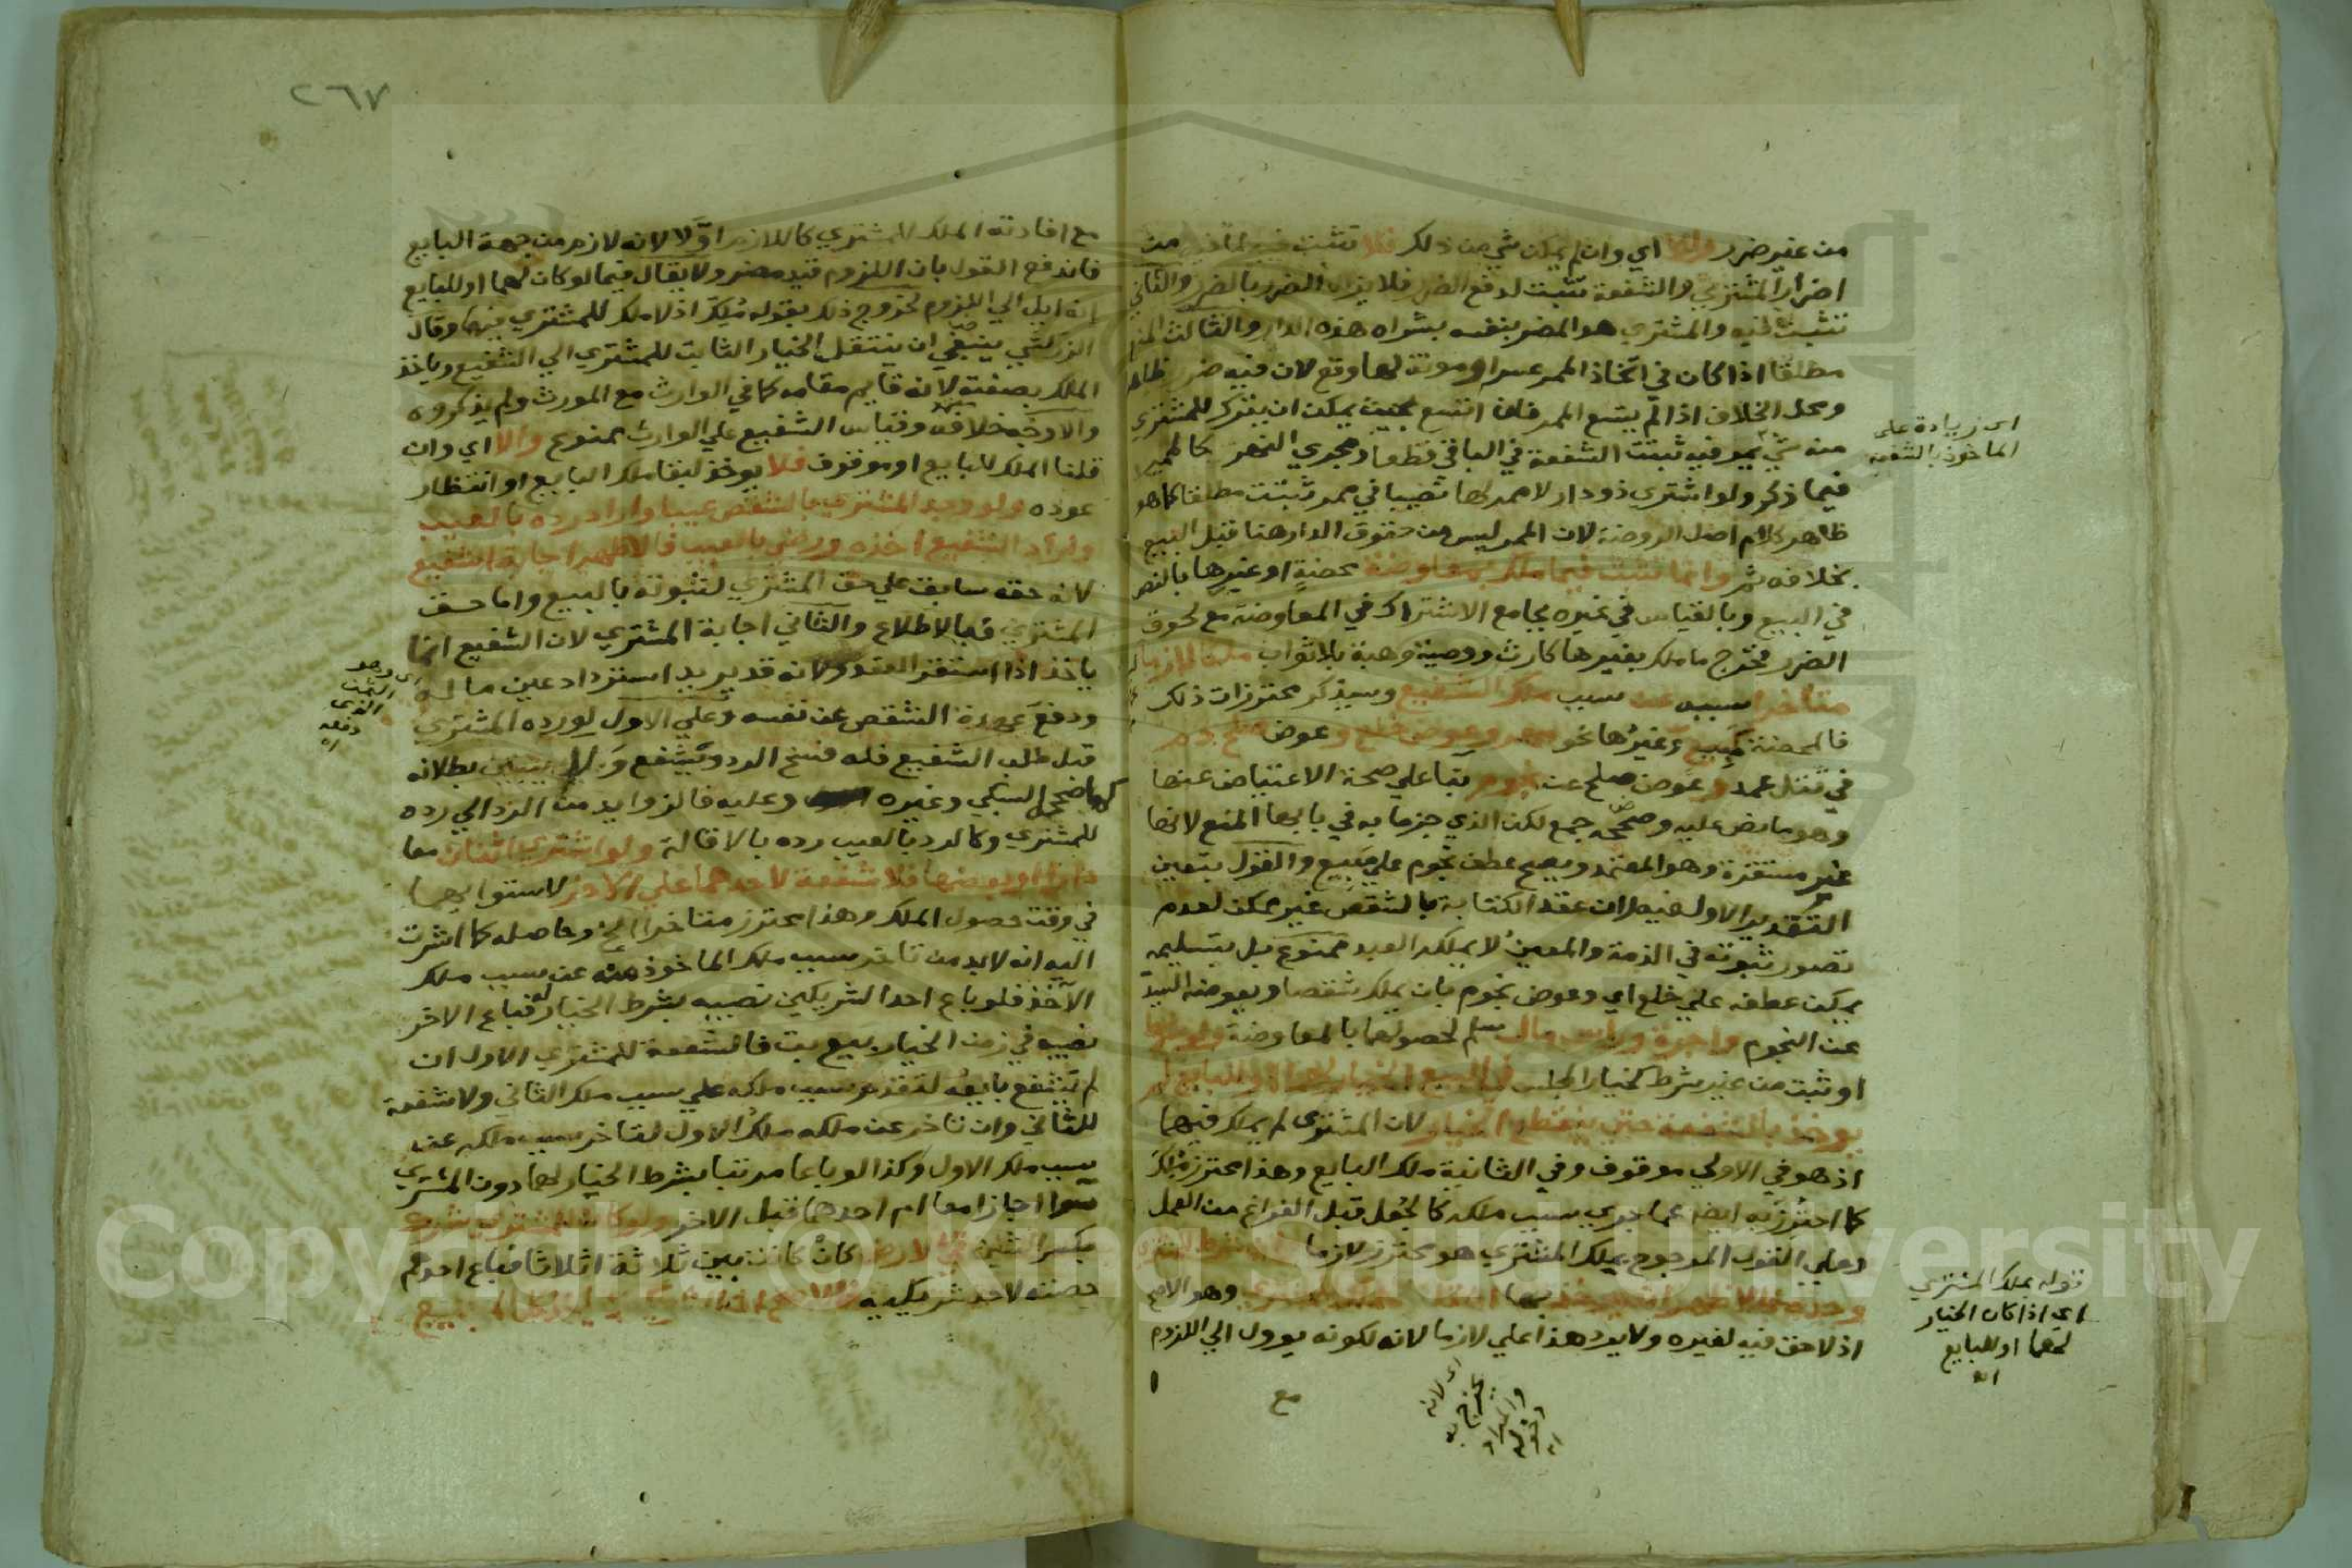 من غير ضرر والا اي وان لم يمكن شي من ذلك فلا تثبت فيه لما فيه من
اضرار المشتري والشفعة تثبت لدفع الضرر فلا يزال الضرر بالضرر والثاني
تثبت فيه والمشتري هو المضر بنفسه بشراه هذه الدار والثالث المنع
مطلقا اذا كان في اتخاذ الممر عسر او مونة لها وقع لان فيه ضررا ظاهرا
ومحل الخلاف اذا لم يتسع الممر فان اتسع بحيث يمكن ان يترك للمشتري
منه شي يمر فيه ثبتت الشفعة في الباقي قطعا ومجري النهر كالممر
فيما ذكر ولو اشتري ذو دار لا ممر لها نصيبا في ممر ثبتت مطلقا كما هو
ظاهر كلام اصل الروضة لان الممر ليس من حقوق الدار هنا قبل البيع
بخلافه ثم وانما تثبت فيما ملك بمعاوضة محضة او غيرها بالنص
في البيع وبالقياس في غيره بجامع الاشتراك في المعاوضة مع لحوق
الضرر فخرج ما ملك بغيرها كارث ووصية وهبة بلا ثواب ملكا لازما
متاخرا سببه عن سبب ملك الشفيع وسيذكر محترزات ذلك
فالمحضة كمبيع وغيرها نحو مهر وعوض خلع وعوض صلح دم
في قتل عمد وعوض صلح عن نجوم بنا علي صحة الاعتياض عنها
وهو ما نص عليه وصححه جمع لكن الذي جزما به في بابها المنع لانها
غير مستقرة وهو المعتمد ويصح عطف نجوم علي مبيع والقول بتعين
التقدير الاول فيه لان عقد الكتابة بالشقص غير ممكن لعدم
تصور ثبوته في الذمة والمعين لا يملكه العبد ممنوع بل بتسليمه
يمكن عطفه علي خلع اي وعوض نجوم بان يملك شقصا ويعوضه السيد
عن النجوم واجرة وراس مال سلم لحصولها بالمعاوضة ولو شرط
او ثبت من غير شرط كخيار المجلس في البيع الخيار لهما او للبايع لم
يوخذ بالشفعة حتي ينقطع الخيار لان المشتري لم يملك فيهما
اذ هو في الاولي موقوف وفي الثانية ملك البايع وهذا محترز ملك
كما احترز به ايضا عما جري سبب ملكه كالجعل قبل الفراغ من العمل
وعلي القول المرجوح بملك المشتري هو محترز لازما وان شرط للمشتري
وحده فالاظهر انه يوخذ بها ان قلنا الملك للمشتري وهو الاصح
اذ لا حق فيه لغيره ولا يرد هذا علي لازما لانه لكونه يوول الي اللزوم
مع
اي زيادة علي
الماخوذ بالشفعة
قوله بملك المشتري
اي اذا كان الخيار
لهما او للبايع
اه
٢٦٧
مع افادته الملك للمشتري كاللازم او لا لانه لازم من جهة البايع
فاندفع القول بان اللزوم قيد مضر ولا يقال فيما لو كان لهما او للبايع
انه ايل الي اللزوم لخروج ذلك بقوله ملك اذ لا ملك للمشتري فيها وقال
الزركشي ينبغي ان ينتقل الخيار الثابت للمشتري الي الشفيع وياخذ
الملك بصفته لانه قايم مقامه كما في الوارث مع المورث ولم يذكروه
والاوجه خلافه وقياس الشفيع علي الوارث ممنوع والا اي وان
قلنا الملك للبايع او موقوف فلا يوخذ لبقا ملك البايع او انتظار
عوده ولو وجد المشتري بالشقص عيبا واراد رده بالعيب
واراد الشفيع اخذه ورضي بالعيب فالاظهر اجابة الشفيع
لان حقه سابق علي حق المشتري لثبوته بالبيع واما حق
المشتري فبالاطلاع والثاني اجابة المشتري لان الشفيع انما
ياخذ اذا استقر العقد ولانه قد يريد استرداد عين ماله
ودفع عهدة الشقص عن نفسه وعلي الاول لو رده المشتري
قبل طلب الشفيع فله فسخ الرد ويشفع ولا يتبين بطلانه
كما صححه السبكي وغيره وعليه فالزوايد من الرد الي رده
للمشتري وكالرد بالعيب رده بالاقالة ولو اشتري اثنان معا
دارا او بعضها فلا شفعة لاحدهما علي الاخر لاستوايهما
في وقت حصول الملك وهذا محترز متاخرا الخ وحاصله كما اشرت
اليه انه لابد من تاخر سبب ملك الماخوذ منه عن سبب ملك
الاخذ فلو باع احد الشريكين نصيبه بشرط الخيار له فباع الاخر
نصيبه في زمن الخيار بيع بت فالشفعة للمشتري الاول ان
لم يشفع بايعه لتقدم سبب ملكه علي سبب ملك الثاني ولا شفعة
للثاني وان تاخر عن ملكه ملك الاول لتاخر سبب ملكه عن
سبب ملك الاول وكذا لو باعا مرتبا بشرط الخيار لهما دون المشتري
سوا اجازا معا ام احدهما قبل الاخر ولو كان للمشتري شرك
بكسر الشين في الارض كان كانت بين ثلاثة اثلاثا فباع احدهم
حصته لاحد شريكيه فالاصح ان الشريك لا ياخذ كل المبيع
اي وهو
الثمن
الذي
دفعه
اه